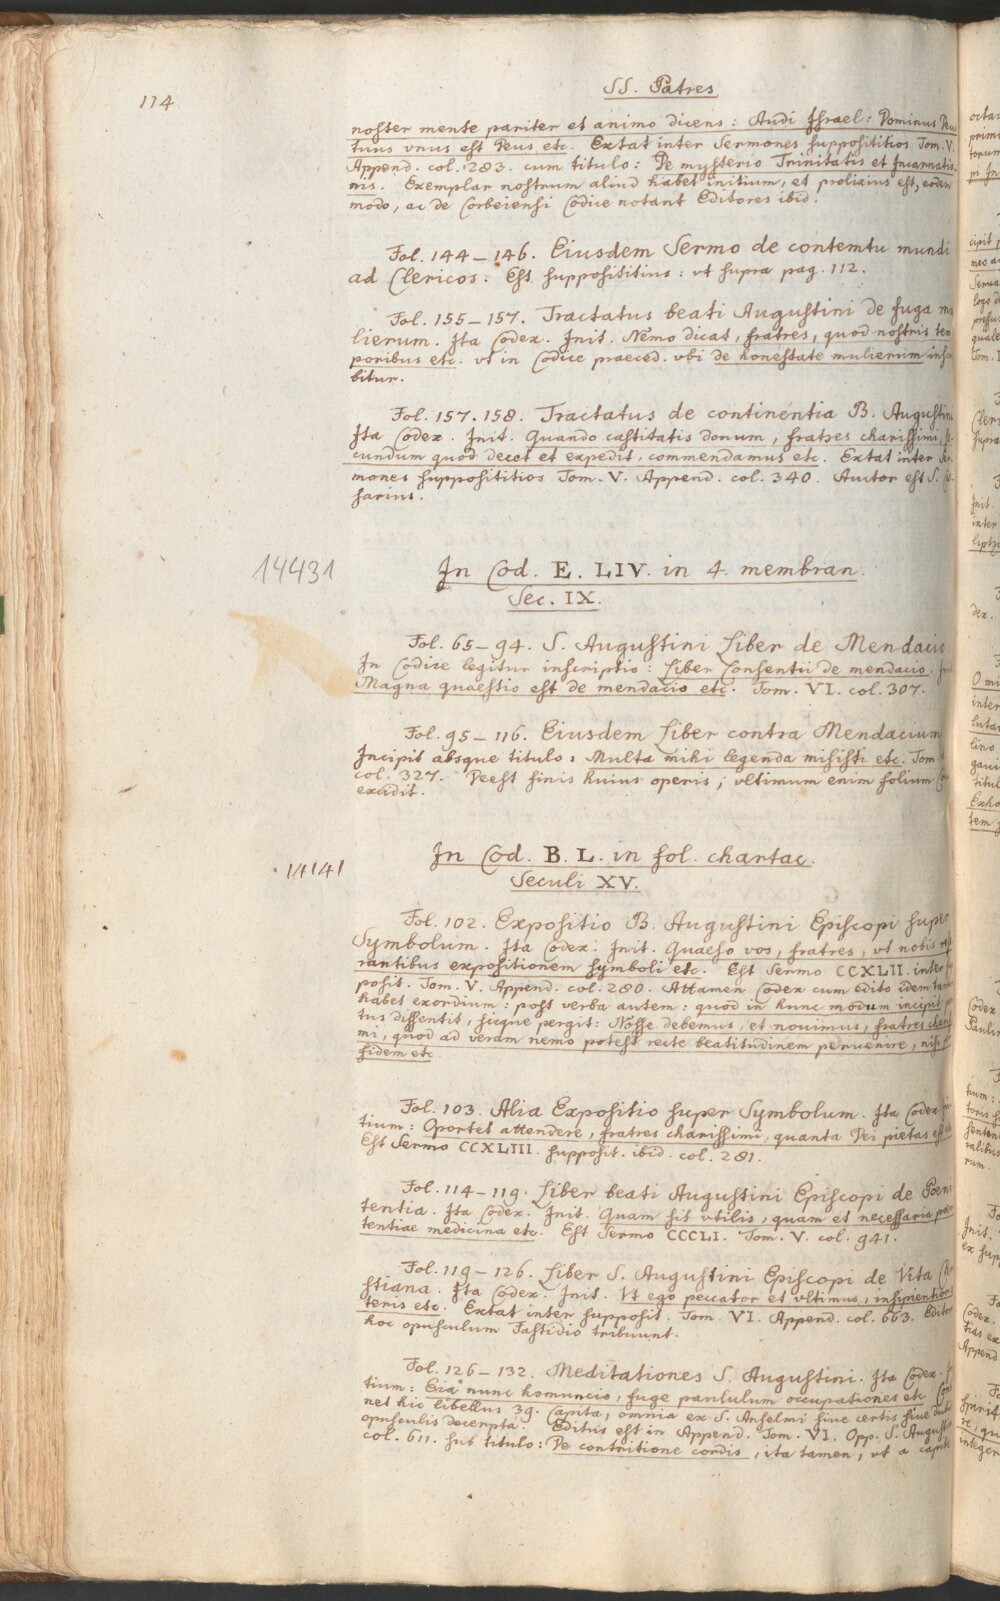 114
SS. Patres
noster mente pariter et animo dicens: Audi Israel: Dominus Deus
tuus vnus est Deus etc. Extat inter Sermones supposititios Tom. V.
Append. col. 283. cum titulo: De mysterio Trinitatis et Incarnatio-
nis. Exemplar nostrum aliud habet initium, et prolixius est, eodem
modo, ac de Corbeiensi Codice notant Editores ibid.
Fol. 144–146. Eiusdem Sermo de contemtu mundi
ad Clericos. Est supposititius: vt supra pag. 112.
Fol. 155–157. Tractatus beati Augustini de fuga mu
lierum. Ita Codex. Init. Nemo dicat, fratres, quod nostris tem
poribus etc. vt in Codice praeced. vbi de honestate mulierum inscri
bitur.
Fol. 157. 158. Tractatus de continentia B. Augustini
Ita Codex. Init. Quando castitatis donum, fratres charissimi, se-
cundum quod decet et expedit, commendamus etc. Extat inter Ser-
mones supposititios Tom. V. Append. col. 340. Auctor est S. Cae-
sarius.
14431
In Cod. E. LIV. in 4. membran.
Sec. IX.
Fol. 65–94. S. Augustini Liber de Mendacio.
In Codice legitur inscriptio: Liber Consentii de mendacio. Init
Magna quaestio est de mendacio etc. Tom. VI. col. 307.
Fol. 95–116. Eiusdem Liber contra Mendacium
Incipit absque titulo: Multa mihi legenda misisti etc. Tom.
col. 327. Deest finis huius operis; vltimum enim folium
excidit.
14141
In Cod. B. L. in fol. chartac.
Seculi XV.
Fol. 102. Expositio B. Augustini Episcopi super
Symbolum. Ita Codex. Init. Quaeso vos, fratres, vt nobis
rantibus expositionem symboli etc. Est Sermo CCXLII. inter
posit. Tom. V. Append. col. 280. Attamen Codex cum edito idem tantum
habet exordium: post verba autem: quod in hunc modum incipit
tus dissentit, sicque pergit: Nosse debemus, et nouimus, fratres charissi
mi, quod ad veram nemo potest recte beatitudinem peruenire, nisi
fidem etc
Fol. 103. Alia Expositio super Symbolum. Ita Codex. Ini-
tium: Oportet attendere, fratres charissimi, quanta Dei pietas
Est Sermo CCXLIII. supposit. ibid. col. 281.
Fol. 114–119. Liber beati Augustini Episcopi de Poeni
tentia. Ita Codex. Init. Quam sit vtilis, quam et necessaria poeni
tentiae medicina etc. Est Sermo CCCLI. Tom. V. col. 941.
Fol. 119–126. Liber S. Augustini Episcopi de Vita Chri
stiana. Ita Codex. Init. Vt ego peccator et vltimus, insipientior
teris etc. Extat inter supposit. Tom. VI. Append. col. 663. Editores
hoc opusculum Fastidio tribuunt.
Fol. 126–132. Meditationes S. Augustini. Ita Codex. Ini
tium: Eia nunc homuncio, fuge paululum occupationes etc. Conti
net hic libellus 39. Capita, omnia ex S. Anselmi siue certis siue dubiis
opusculis decerpta. Editus est in Append. Tom. VI. Opp. S. Augustini
col. 611. sub titulo: De contritione cordis, ita tamen, vt a capite